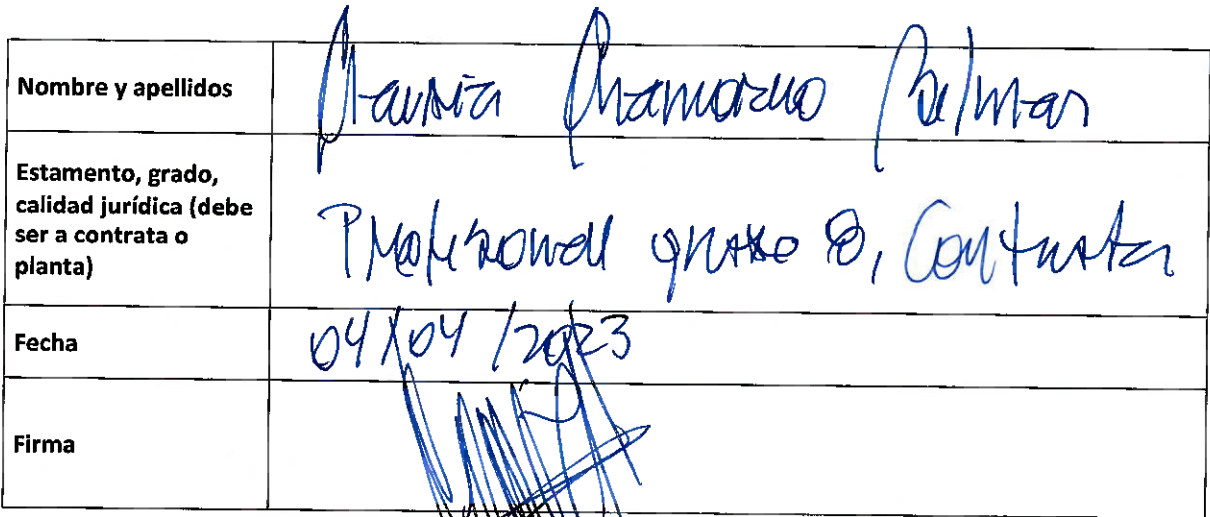 Nombre y apellidos
Chamorro Belmar
Estamento, grado,
calidad jurídica (debe
ser a contrata o
planta)
Profesional grado 8, Contrata
Fecha
04/04/2023
Firma